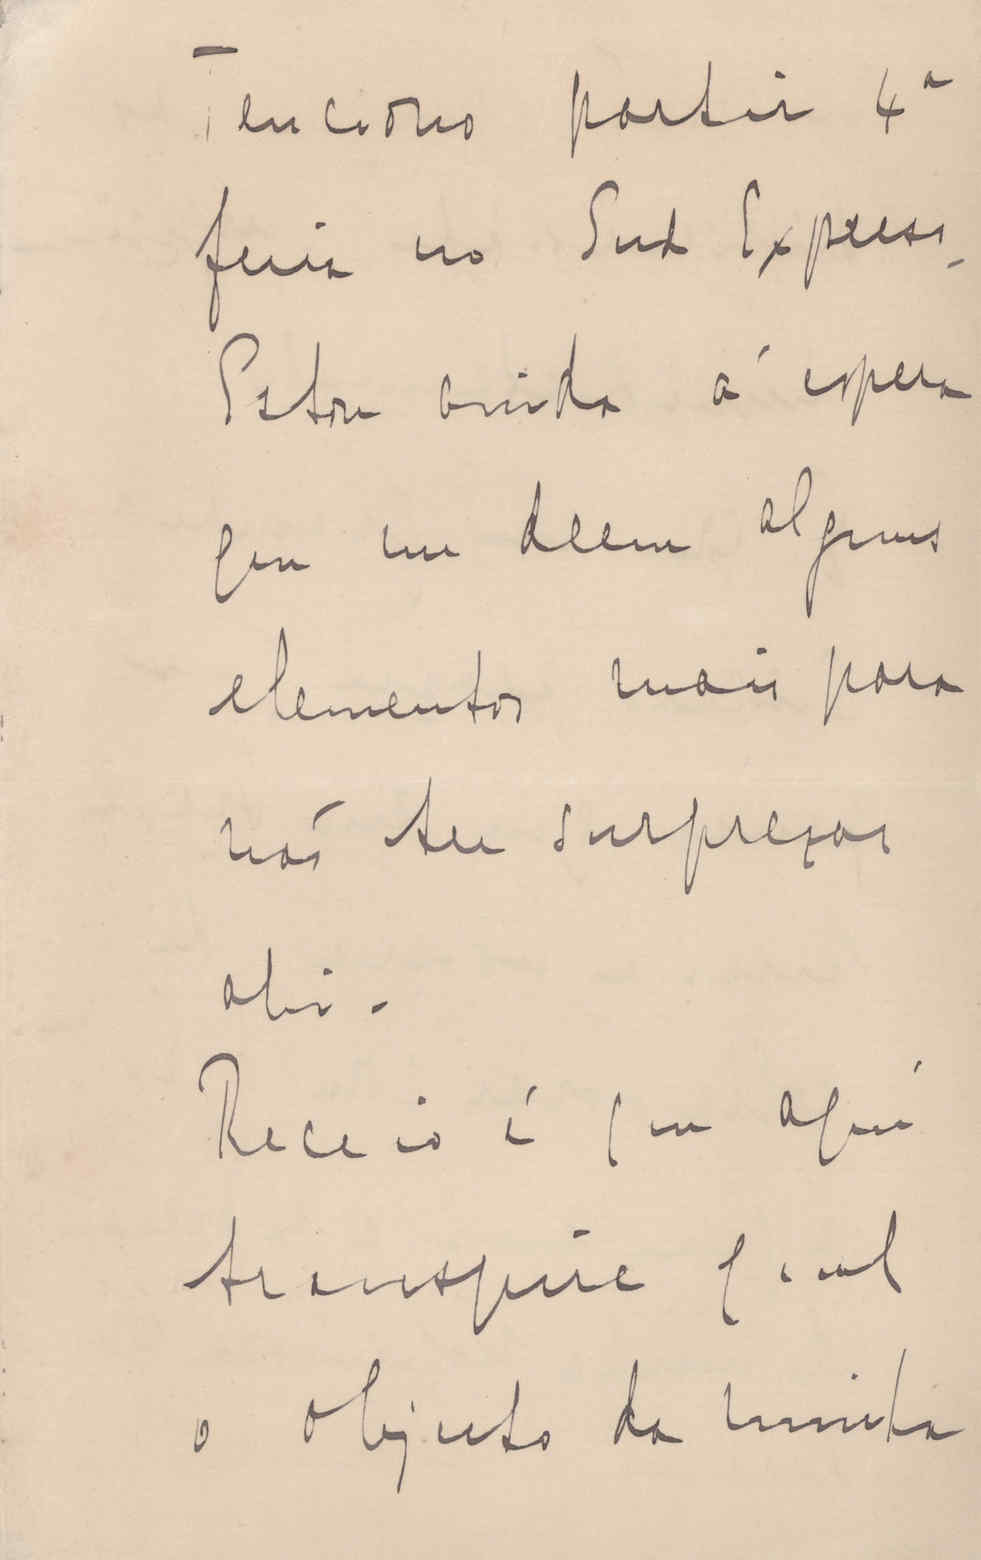 Tenciono partir 4ª
feira no Sud Express.
Estou ainda á espera
que me deem alguns
elementos mais para
não ter surprezas
ahi.
Receio é que aqui
transpire qual
o objecto da minha